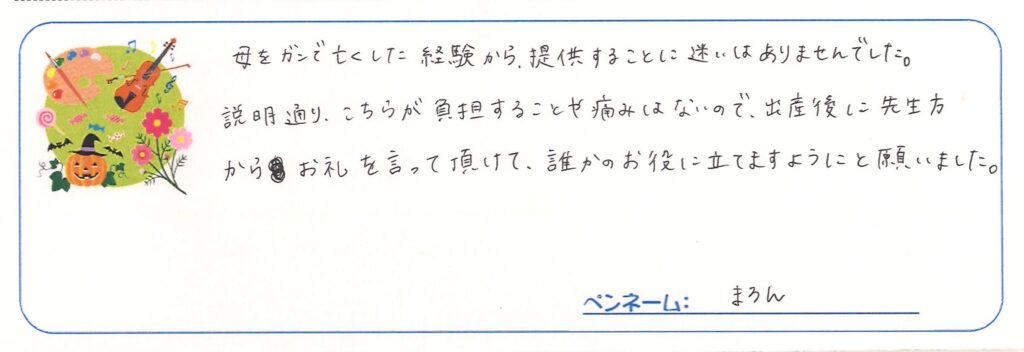 母をガンで亡くした経験から、提供することに迷いはありませんでした。
説明通り、こちらが負担することや痛みはないので、出産後に先生方
からお礼を言って頂けて、誰かのお役に立てますようにと願いました。
ペンネーム: まろん